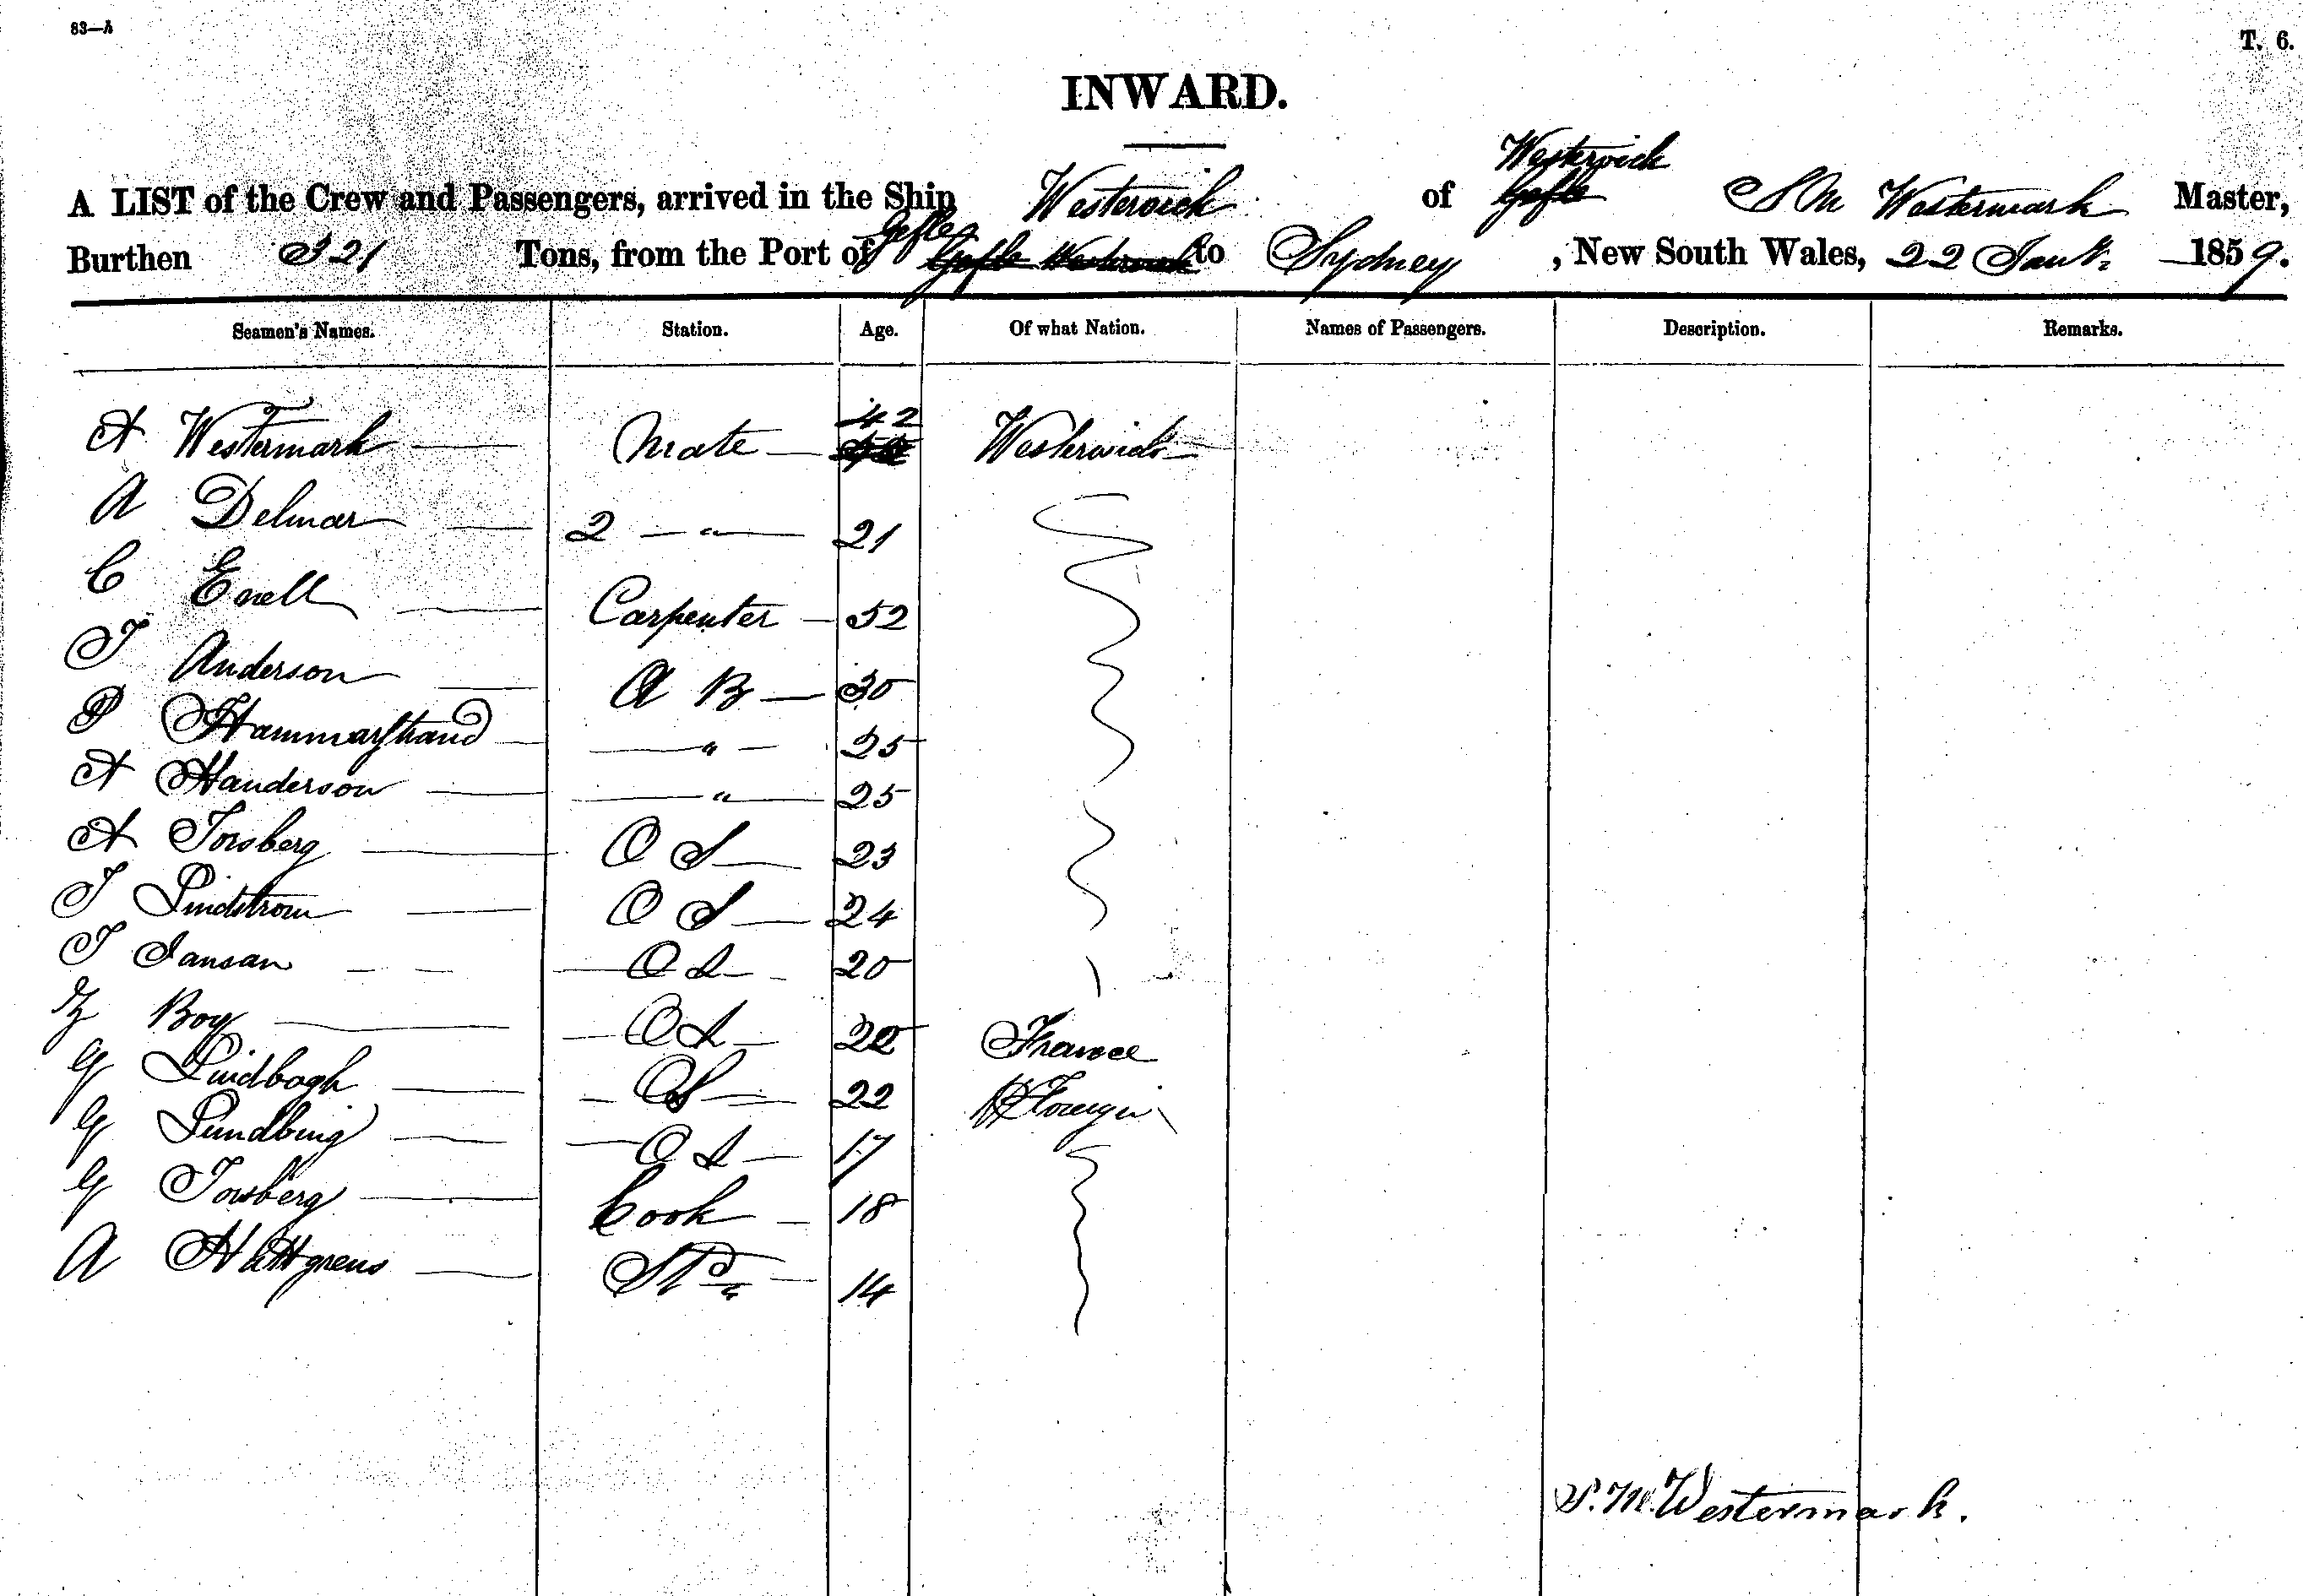 83—A
T. 6.
INWARD.
Westerwick
A LIST of the Crew and Passengers, arrived in the Ship Westerwick of Gefle S M Westermark Master,
Gefle
Burthen 321 Tons, from the Port of Gefle Westerwick to Sydney, New South Wales, 22 Jany. 1859.
Seamen's Names. Station. Age. Of what Nation. Names of Passengers. Description. Remarks.
42
A Westermark Mate Westerwick
A Delmar 2 " 21
C Enell Carpenter 52
J Anderson A B 30
P Hammarstrand " 25
A Handerson " 25
A Forsberg O S 23
J Lindstrom O S 24
J Jansan O S 20
Boy O S 22 France
G Lindbogh O S 22
G Lundberg O S 17
G Forsberg Cook 18
A 14
S. M. Westermark.